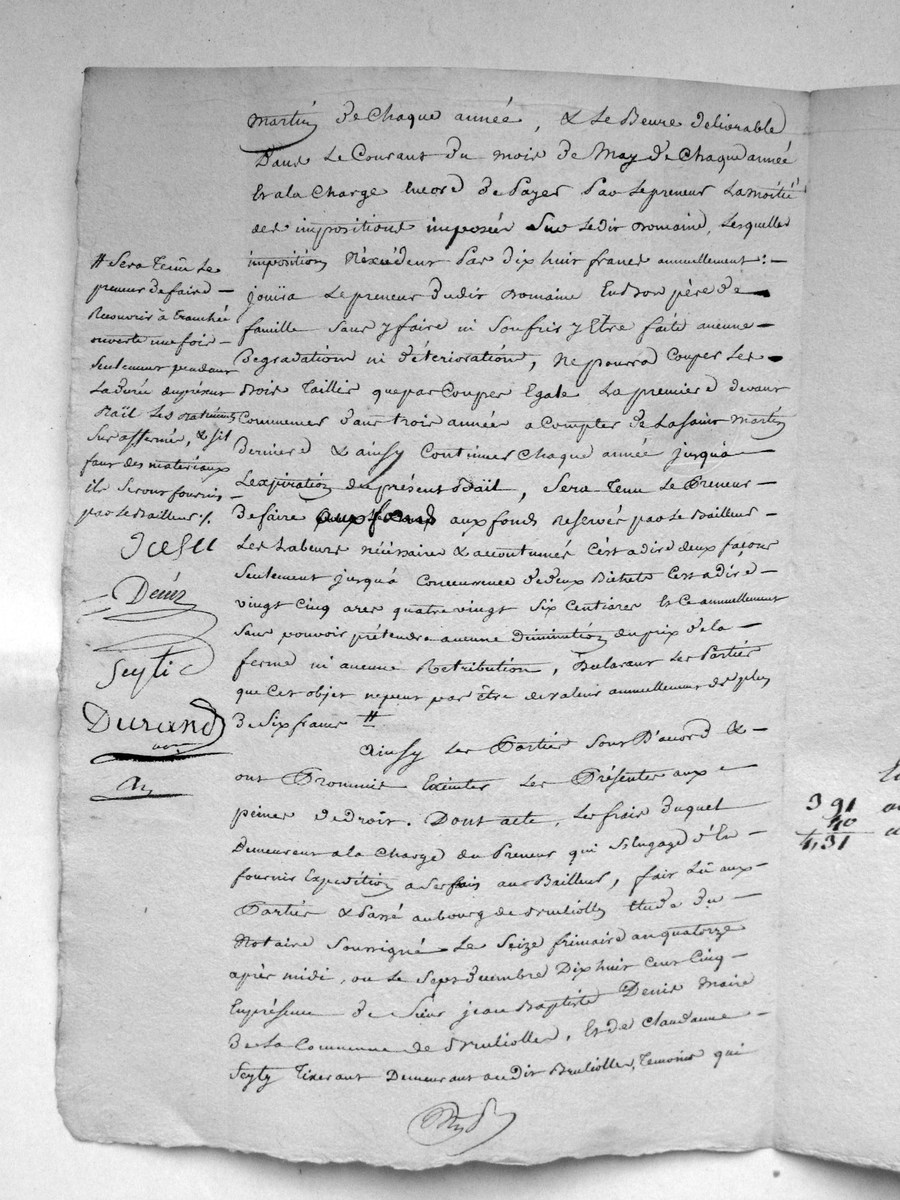 martin de Chaque année, & Le Beure délivrable
Dans Le Courant du mois de May de Chaque année
Et ala Charge encore de Payer Par Le preneur La moitié
des impositions imposées Sur Ledit Domaine, Lesquelles
impositions N'excèdent Par dix huit francs annuellement :-
jouira Le preneur dudit Domaine En Bon père de
famille Sans y faire ni Soufrir y Etre faite aucune -
Dégradation ni déterioration, Ne pourra Couper Les -
Bois Taillis que par Coupes Egale La premiere devant
Commencer dans trois années a Compter de La Saint Martin
Derniere & ainsy Continuer Chaque année jusqu'à -
L'expiration du présent Bail, Sera Tenu Le Preneur -
de faire aux fonds aux fonds reservés par Le Bailleur -
Les Labeurs nécéssaires & accoutumés C'est adire deux façons
Seulement jusqu'à Concurrence de deux Bicherées C'est adire -
vingt Cinq ares quatre vingt Six Centiares Et Ce annuellement
Sans pouvoir prétendre aucune Diminution du prix de la -
ferme ni aucune Retribution, Déclarant Les Parties
que Cet objet ne peut pas être de valeur annuellement de plus
de Six francs #
Ainsy Les Parties Sont D'accord & -
ont Promis Exécuter Les Présentes aux -
peines de droit. Dont acte, Les frais duquel
Demeurent a la Charge du Preneur qui S'Engage d'En -
fournir Expédition a Ses frais au Bailleur, fait Lû aux -
Parties & Passé au bourg de Brulliolles Etude du -
Notaire Soussigné Le Seize frimaire an quatorze
après midi, ou Le Sept décembre Dix huit Cent Cinq -
En présence de Sieur jean Baptiste Denis Maire
de La Commune de Brulliolles, Et de Claude
Seyty Tixerant Demeurant audit Brulliolles, Temoins qui
# Sera Tenû Le
preneur de faire -
Recouvrir à tranchée
ouverte une fois -
Seulement pendant
La durée du présent
Bail Les Batiments
Sus affermés, & s'il
faut des materiaux
ils Seront fournis -
par Le Bailleur ./.
Denis
Seytie
Durand
3 91
40
4,31